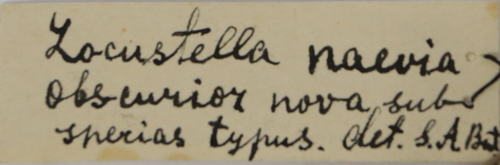 Locustella naevia
obscurior nova sub-
sperias typus. det. S. A. But